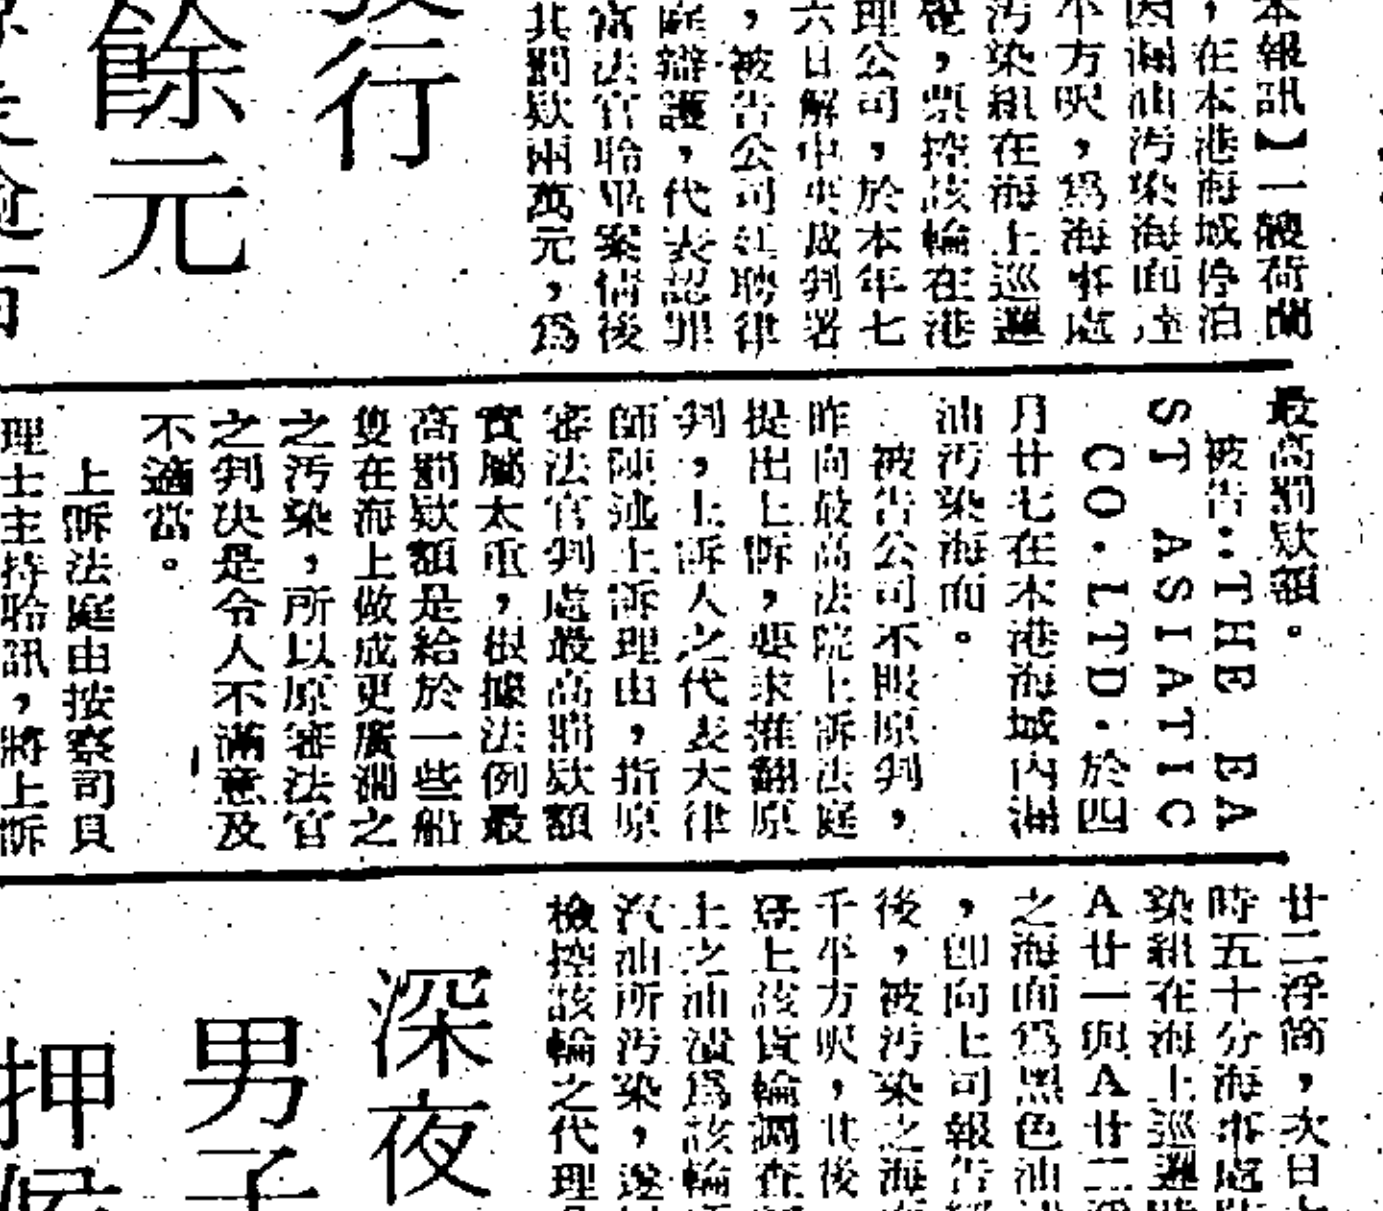 本報訊】一艘荷蘭
，在本港海域停泊
因漏油污染海面達
不方呎，爲海事處
污染組在海上巡邏
覺，票控該輪在港
理公司，於本年七
六日解中央裁判署
，被告公司紅聘律
庭辯護，代表認罪
富法官聆畢案情後
其罰欵兩萬元，爲
行
餘元
最高罰欵額。
被告：THE EA
ST ASIATIC
CO.LTD.於四
月廿七在本港海域內漏
油污染海面。
被告公司不服原判，
昨向最高法院上訴法庭
提出上訴，要求推翻原
判，上訴人之代表大律
師陳述上訴理由，指原
審法官判處最高罰欵額
實屬太重，根據法例最
高罰欵額是給於一些船
隻在海上做成更廣濶之
之污染，所以原審法官
之判決是令人不滿意及
不適當。
上訴法庭由按察司貝
理士主持聆訊，將上訴
廿二浮筒，次日
時五十分海事處
染組在海上巡邏
A廿一與A廿二浮
之海面爲黑色油
，卽向上司報告
後，被污染之海
千平方呎，其後
登上該貨輪調查
上之油漬爲該輪
汽油所污染，遂
檢控該輪之代理
深夜
男子
押